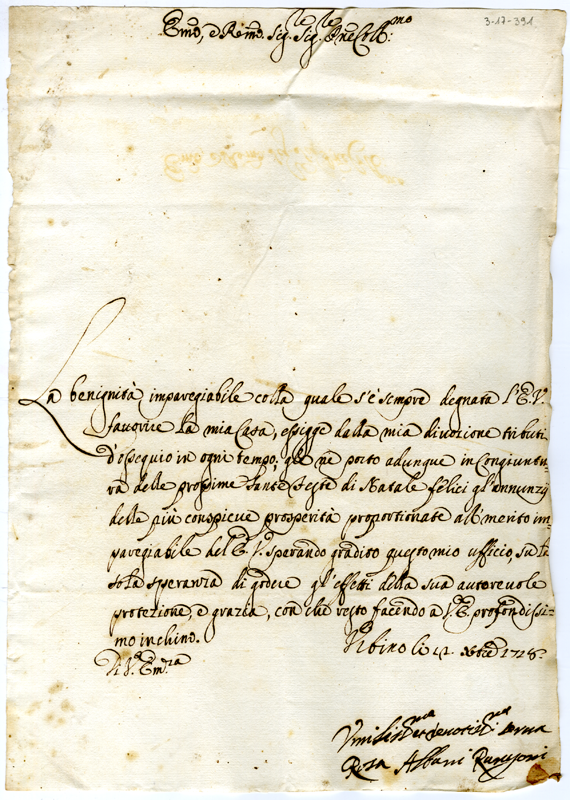 3-17-391
Emo, e Remo. Sig.le Sig.le Prne Colle:mo
La benignità imparegiabile colla quale s'è sempre degnata l'E.V.a
favorire la mia Casa, esigge dalla mia divozione tributi
d'ossequio in ogni tempo; gle ne porto adunque in congiuntu-
ra delle prossime Sante Feste di Natale felici gl'annunzij
delle più conspicue prosperità proportionate all merito im-
paregiabile del E.V. sperando gradito questo mio ufficio, su la
sola speranza di godere gl'effetti della sua autorevole
protezione, e grazia, con che resto facendo a V.E. profondissi-
mo inchino.
Urbino li 1728.
Di V.a Em.za
Umilis.ma et devotis.ma serva
Rosa Albani